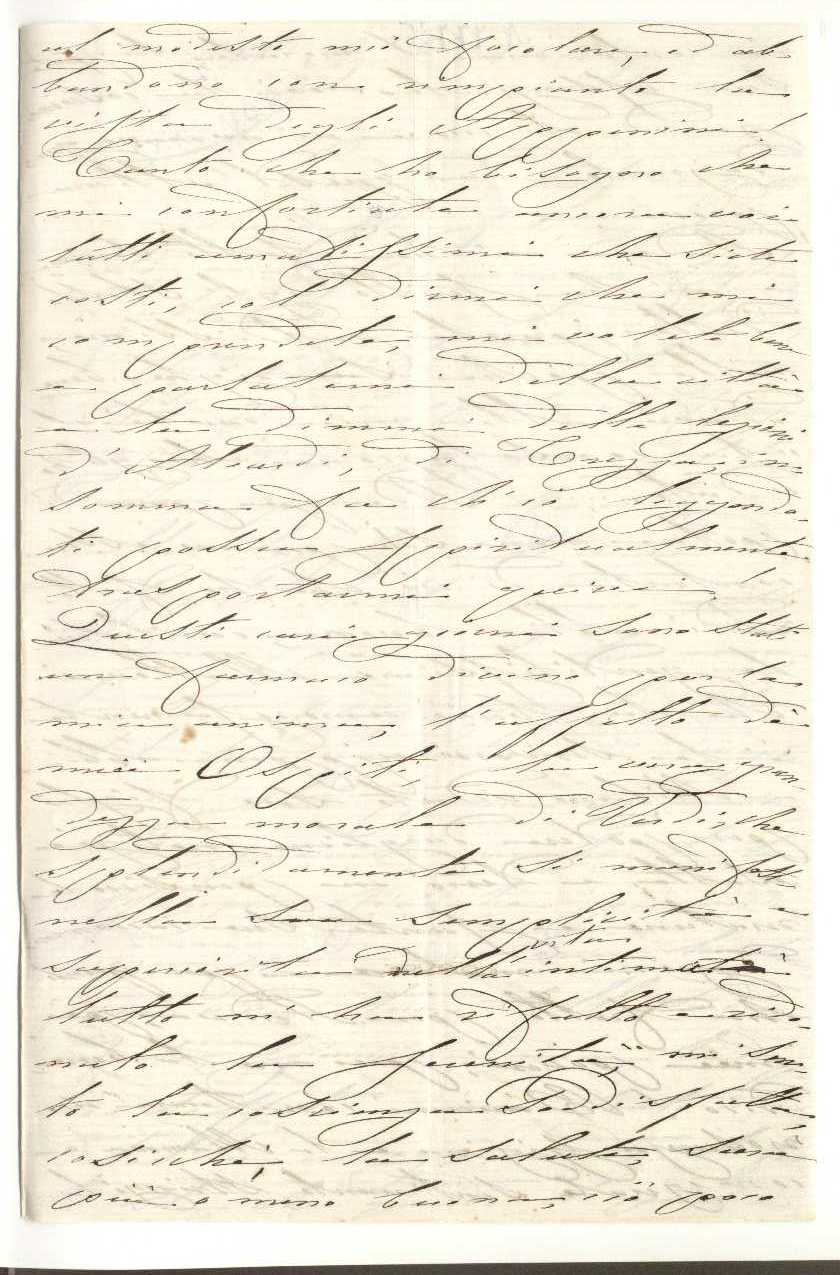 al modesto mio focolare, ed ab-
bandono con rimpianto la
vista degli Appennini!
Tanto che ho bisogno che
mi confortiate ancora voi
tutti amatissimi che siete
costì, col dirmi che mi
comprendete, mi volete bene
e parlatemi della città
e tu dimmi delle lezioni
d'Aleardi, di Trezza, in-
somma fa ch'io leggendo-
ti possa spiritualmente
trasportarmi quivi!
Questi cari giorni sono stati
un farmaco divino per la
mia anima, l'affetto de'
miei Ospiti, la vera gran-
dezza morale di Verdi, che
splendidamente si manifesta
nella sua semplicità e
superiorità nell'intimità
tutto m'ha rifatto e rido-
nato la serenità; mi sen-
to la coscienza soddisfatta,
cosicchè, la salute, sarà
più o meno buona, ciò poco